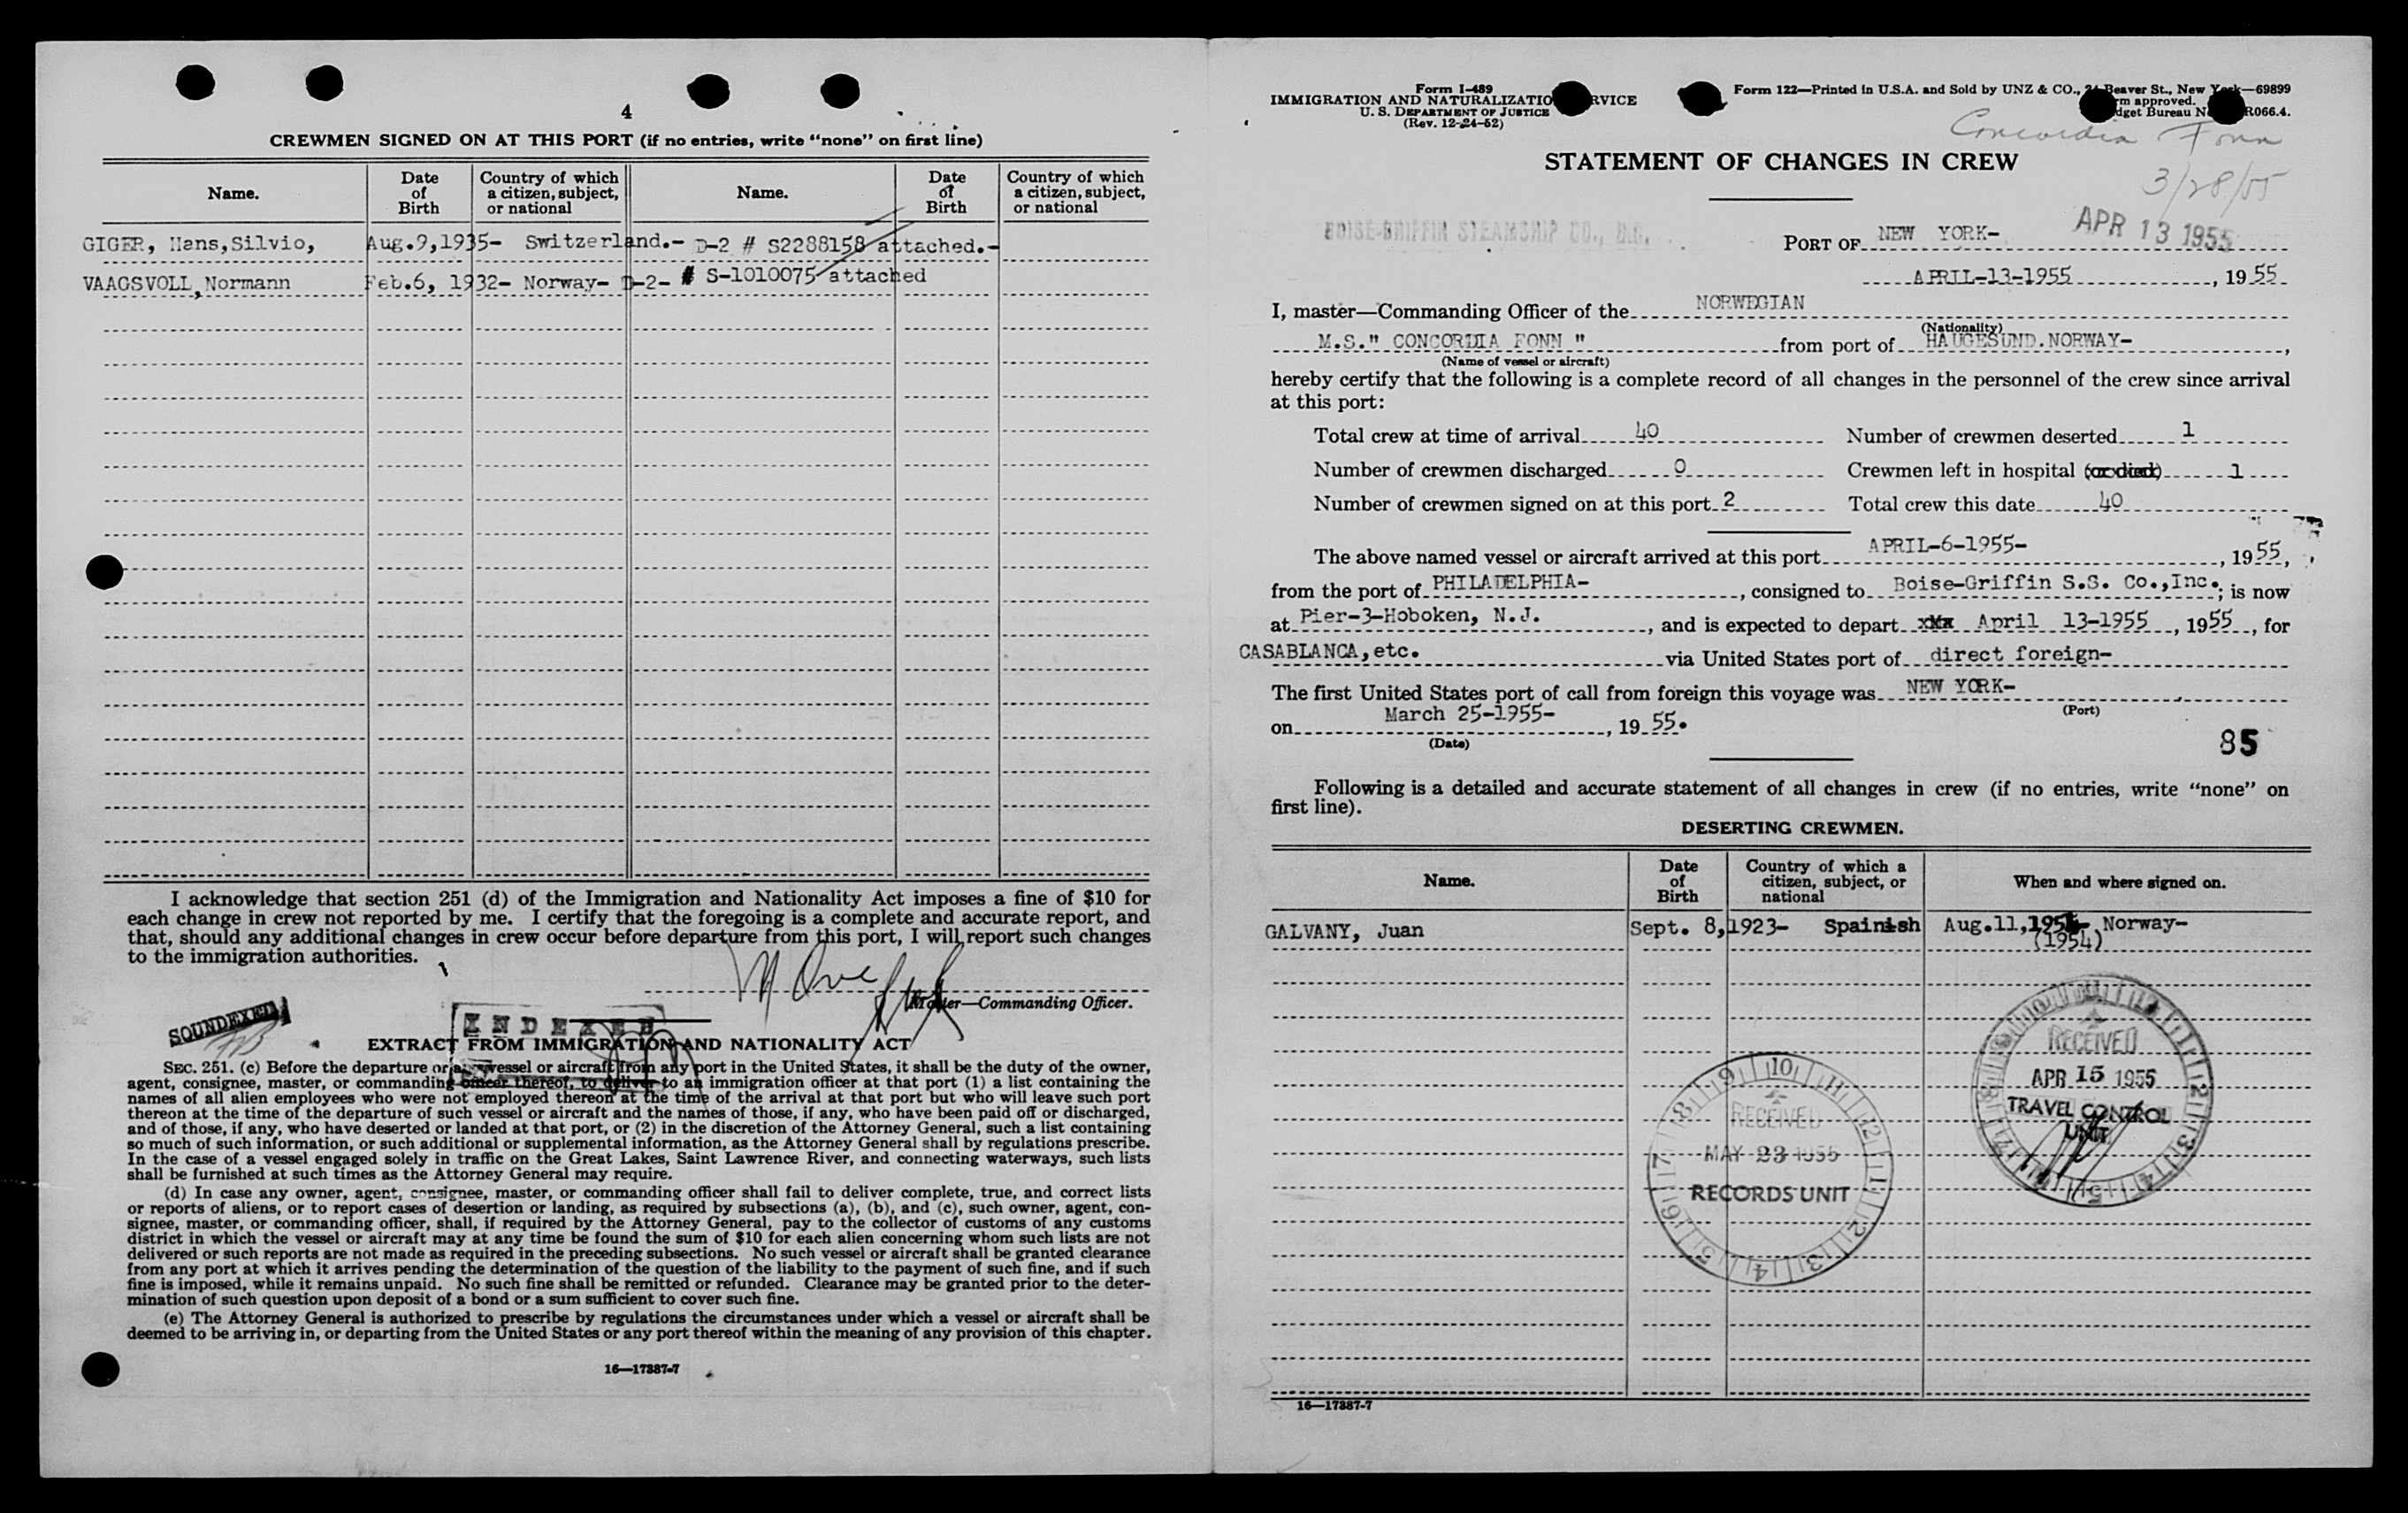 4
CREWMEN SIGNED ON AT THIS PORT (if no entries, write "none" on first line)
Name. Date of Birth Country of which a citizen, subject, or national Name. Date of Birth Country of which a citizen, subject, or national
GIGER, Hans,Silvio, Aug.9,1935- Switzerland.- D-2 # S2288158 attached.-
VAAGSVOLL,Normann Feb.6, 1932- Norway- D-2- # S-1010075 attached
I acknowledge that section 251 (d) of the Immigration and Nationality Act imposes a fine of $10 for
each change in crew not reported by me. I certify that the foregoing is a complete and accurate report, and
that, should any additional changes in crew occur before departure from this port, I will report such changes
to the immigration authorities.
Master—Commanding Officer.
SOUNDEXED
INDEXED
EXTRACT FROM IMMIGRATION AND NATIONALITY ACT
SEC. 251. (c) Before the departure of any vessel or aircraft from any port in the United States, it shall be the duty of the owner,
agent, consignee, master, or commanding officer thereof, to deliver to an immigration officer at that port (1) a list containing the
names of all alien employees who were not employed thereon at the time of the arrival at that port but who will leave such port
thereon at the time of the departure of such vessel or aircraft and the names of those, if any, who have been paid off or discharged,
and of those, if any, who have deserted or landed at that port, or (2) in the discretion of the Attorney General, such a list containing
so much of such information, or such additional or supplemental information, as the Attorney General shall by regulations prescribe.
In the case of a vessel engaged solely in traffic on the Great Lakes, Saint Lawrence River, and connecting waterways, such lists
shall be furnished at such times as the Attorney General may require.
(d) In case any owner, agent, consignee, master, or commanding officer shall fail to deliver complete, true, and correct lists
or reports of aliens, or to report cases of desertion or landing, as required by subsections (a), (b), and (c), such owner, agent, con-
signee, master, or commanding officer, shall, if required by the Attorney General, pay to the collector of customs of any customs
district in which the vessel or aircraft may at any time be found the sum of $10 for each alien concerning whom such lists are not
delivered or such reports are not made as required in the preceding subsections. No such vessel or aircraft shall be granted clearance
from any port at which it arrives pending the determination of the question of the liability to the payment of such fine, and if such
fine is imposed, while it remains unpaid. No such fine shall be remitted or refunded. Clearance may be granted prior to the deter-
mination of such question upon deposit of a bond or a sum sufficient to cover such fine.
(e) The Attorney General is authorized to prescribe by regulations the circumstances under which a vessel or aircraft shall be
deemed to be arriving in, or departing from the United States or any port thereof within the meaning of any provision of this chapter.
16—17387-7
Form I-489
IMMIGRATION AND NATURALIZATIO RVICE
U. S. DEPARTMENT OF JUSTICE
(Rev. 12-24-52)
Form 122—Printed in U.S.A. and Sold by UNZ & CO., 24 Beaver St., New York—69899
rm approved.
dget Bureau N R066.4.
Concordia Fonn
3/28/55
STATEMENT OF CHANGES IN CREW
BOISE-GRIFFIN STEAMSHIP CO., INC.
APR 13 1955
PORT OF NEW YORK-
APRIL-13-1955, 1955
I, master—Commanding Officer of the NORWEGIAN
(Nationality)
M.S." CONCORDIA FONN " from port of HAUGESUND.NORWAY-,
(Name of vessel or aircraft)
hereby certify that the following is a complete record of all changes in the personnel of the crew since arrival
at this port:
Total crew at time of arrival 40 Number of crewmen deserted 1
Number of crewmen discharged 0 Crewmen left in hospital (or died) 1
Number of crewmen signed on at this port 2 Total crew this date 40
The above named vessel or aircraft arrived at this port APRIL-6-1955-, 1955,
from the port of PHILADELPHIA-, consigned to Boise-Griffin S.S. Co.,Inc.; is now
at Pier-3-Hoboken, N.J., and is expected to depart xxx April 13-1955, 1955, for
CASABLANCA,etc. via United States port of direct foreign-
The first United States port of call from foreign this voyage was NEW YORK-
(Port)
on March 25-1955-, 19 55.
(Date)
85
Following is a detailed and accurate statement of all changes in crew (if no entries, write "none" on
first line).
DESERTING CREWMEN.
Name. Date of Birth Country of which a citizen, subject, or national When and where signed on.
GALVANY, Juan Sept. 8,1923- Spainish Aug.11,1954- Norway-
(1954)
RECEIVED
APR 15 1955
TRAVEL CONTROL
UNIT
RECEIVED
MAY 23 1955
RECORDS UNIT
16—17387-7